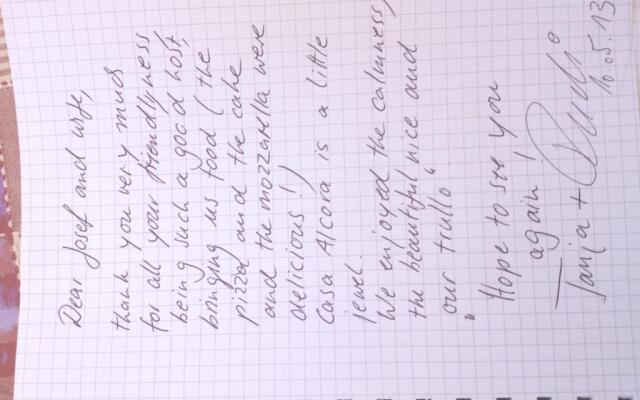 Dear Josef and wife,
thank you very much
for all your friendlyness
being such a good host,
bringing us food (the
pizza and the cake
and the mozzarella were
delicious!)
Casa Alcora is a little
jewel.
We enjoyed the calmness,
the beautiful nice and
our trullo"
" Hope to see you
again!
Tanja +
10.05.13